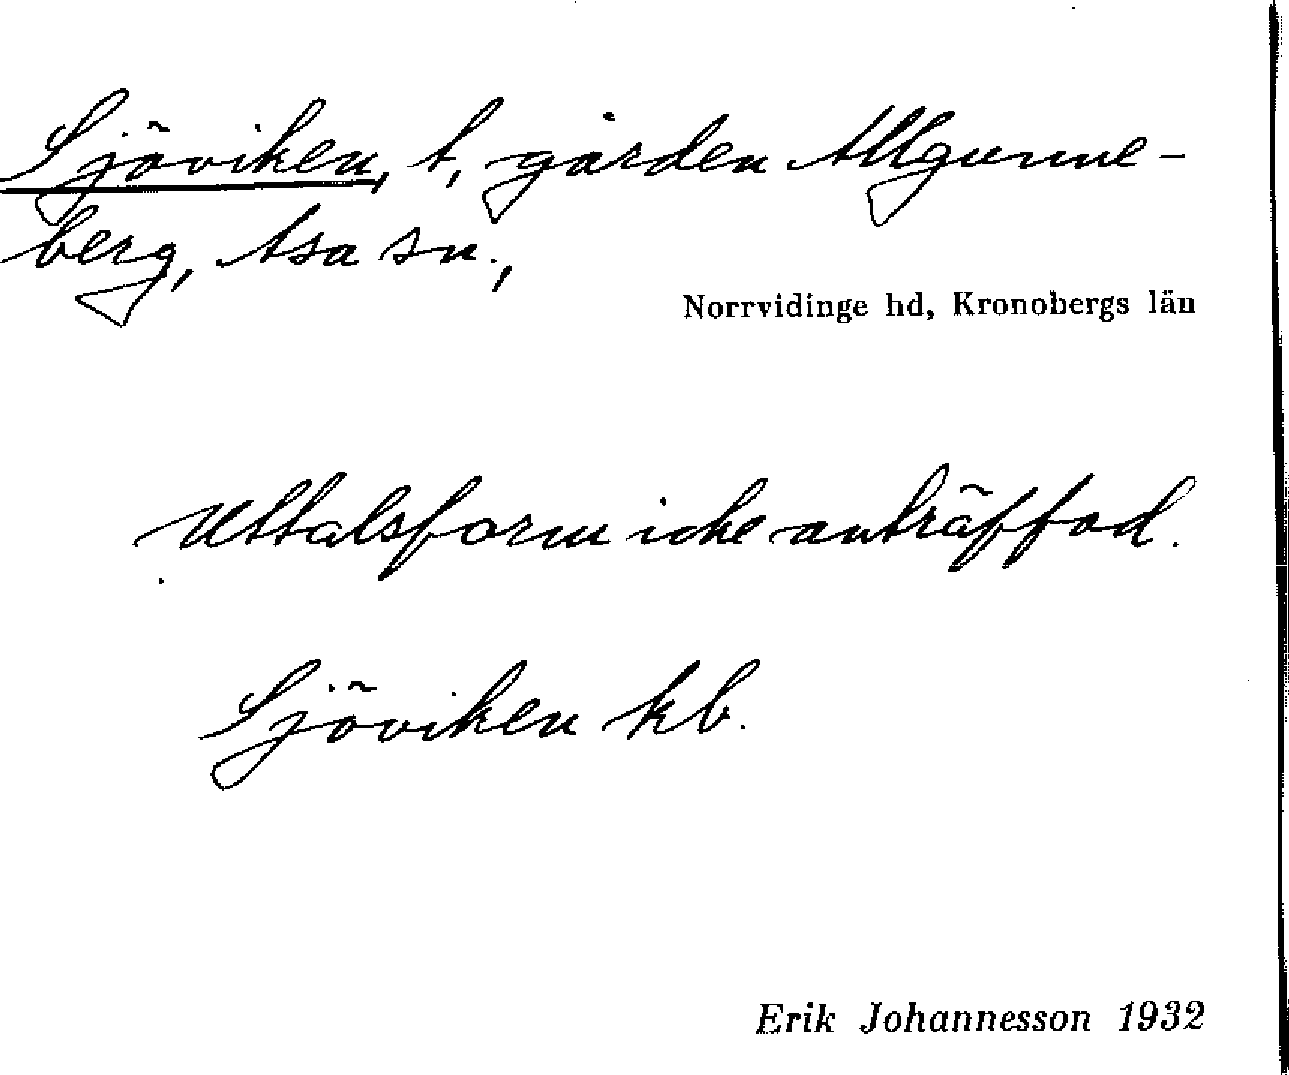 Sjöviken, t, gården Allgunne-
berg, Asa sn.,
Norrvidinge hd, Kronobergs län
Uttalsform icke anträffad.
Sjöviken kb.
Erik Johannesson 1932